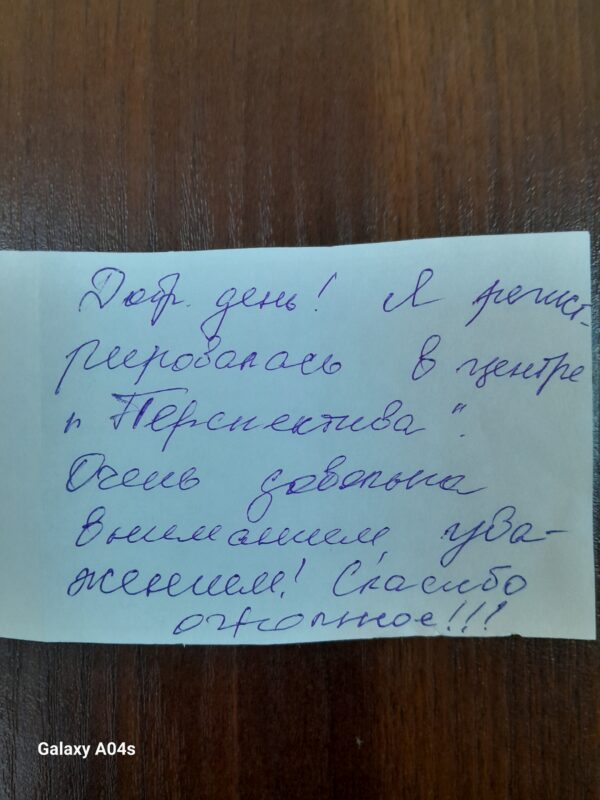 Добр. день! Я регист-
рировалась в центре
„Перспектива".
Очень довольна
вниманием, ува-
жением! Спасибо
огромное!!!
Galaxy A04s